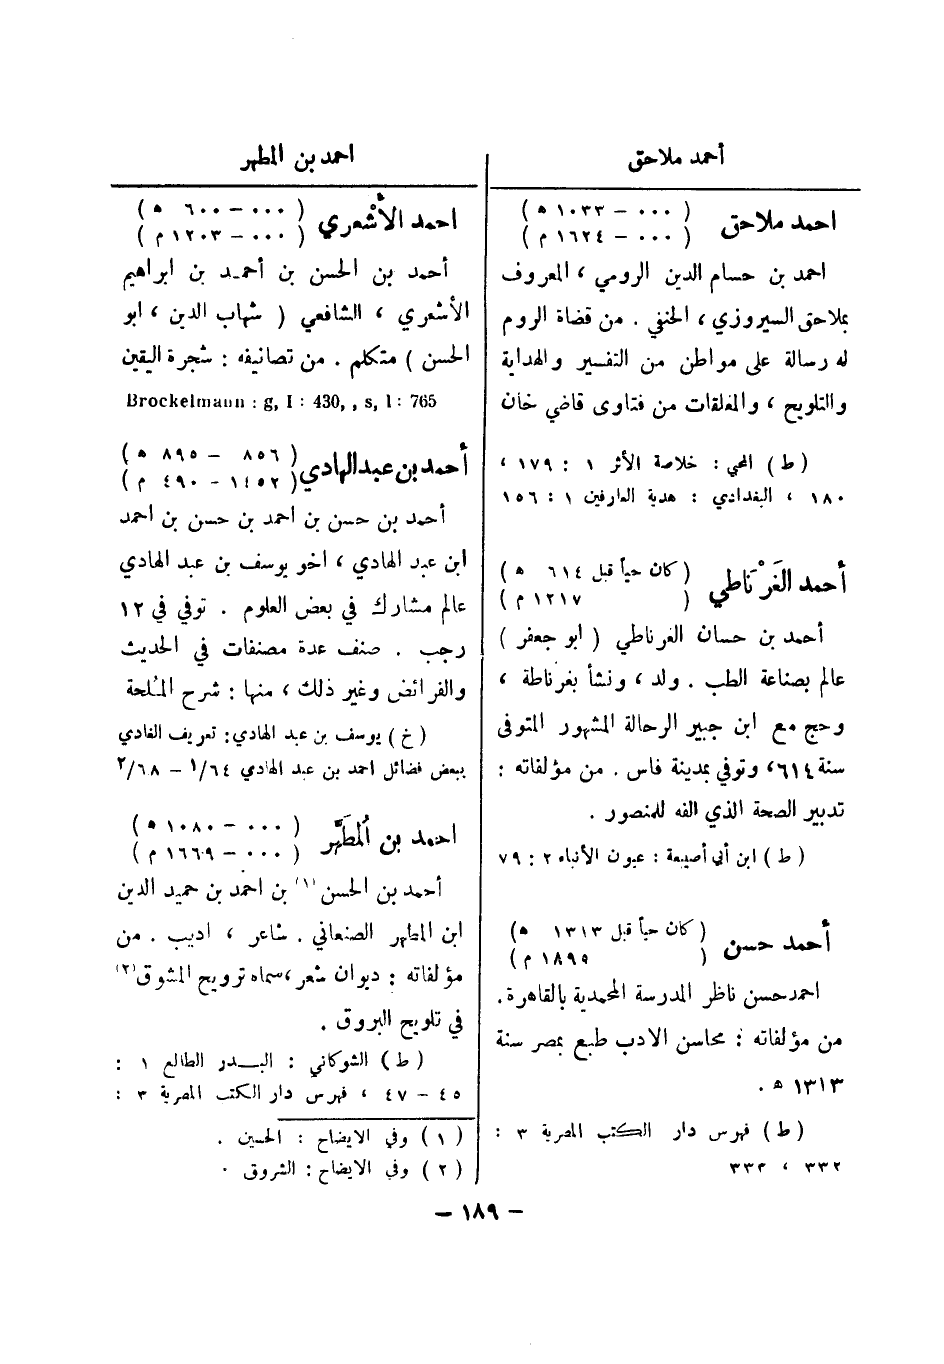 أحمد ملاحق
احمد ملاحق
( ٠٠٠ – ١٠٣٣ ه )
( ٠٠٠ – ١٦٢٤ م )
احمد بن حسام الدين الرومي ، المعروف
بملاحق السيروزي ، الحنفي . من قضاة الروم
له رسالة على مواطن من التفسير والهداية
والتلويح ، والمغلقات من فتاوى قاضي خان
( ط ) المحبي : خلاصة الأثر ١ : ١٧٩ ،
١٨٠ ، البغدادي : هدية العارفين ١ : ١٥٦
أحمد الغَرْنَاطي
( كان حياً قبل ٦١٤ ه )
( ١٢١٧ م )
أحمد بن حسان الغرناطي ( ابو جعفر )
عالم بصناعة الطب . ولد ، ونشأ بغرناطة ،
وحج مع ابن جبير الرحالة المشهور المتوفى
سنة ٦١٤، وتوفي بمدينة فاس . من مؤلفاته :
تدبير الصحة الذي الفه للمنصور .
( ط ) ابن أبي أصيبعة : عيون الأنباء ٢ : ٧٩
أحمد حسن
( كان حياً قبل ١٣١٣ ه )
( ١٨٩٥ م )
احمد حسن ناظر المدرسة المحمدية بالقاهرة .
من مؤلفاته : محاسن الادب طبع بمصر سنة
١٣١٣ ه .
( ط ) فهرس دار الكتب المصرية ٣ :
٣٣٢ ، ٣٣٣
احمد بن المطهر
احمد الأَشْعري
( ٠٠٠ – ٦٠٠ ه )
( ٠٠٠ – ١٢٠٣ م )
أحمد بن الحسن بن أحمد بن ابراهيم
الأشعري ، الشافعي ( شهاب الدين ، ابو
الحسن ) متكلم . من تصانيفه : شجرة اليقين
Brockelmann : g, I : 430, , s, I : 765
أحمد بن عبد الهادي
( ٨٥٦ – ٨٩٥ ه )
( ١٤٥٢ – ٤٩٠ م )
أحمد بن حسن بن احمد بن حسن بن احمد
ابن عبد الهادي ، اخو يوسف بن عبد الهادي
عالم مشارك في بعض العلوم . توفي في ١٢
رجب . صنف عدة مصنفات في الحديث
والفرائض وغير ذلك ، منها : شرح الملحة
( خ ) يوسف بن عبد الهادي : تعريف الغادي
ببعض فضائل احمد بن عبد الهادي ١/٦٤ – ٢/٦٨
احمد بن المُطَهَّر
( ٠٠٠ – ١٠٨٠ ه )
( ٠٠٠ – ١٦٦٩ م )
أحمد بن الحسن (١) بن احمد بن حميد الدين
ابن المطهر الصنعاني . شاعر ، اديب . من
مؤلفاته : ديوان شعر ، سماه ترويح المشوق (٢)
في تلويح البروق .
( ط ) الشوكاني : البدر الطالع ١ :
٤٥ – ٤٧ ، فهرس دار الكتب المصرية ٣ :
( ١ ) وفي الايضاح : الحسين .
( ٢ ) وفي الايضاح : الشروق .
– ١٨٩ –